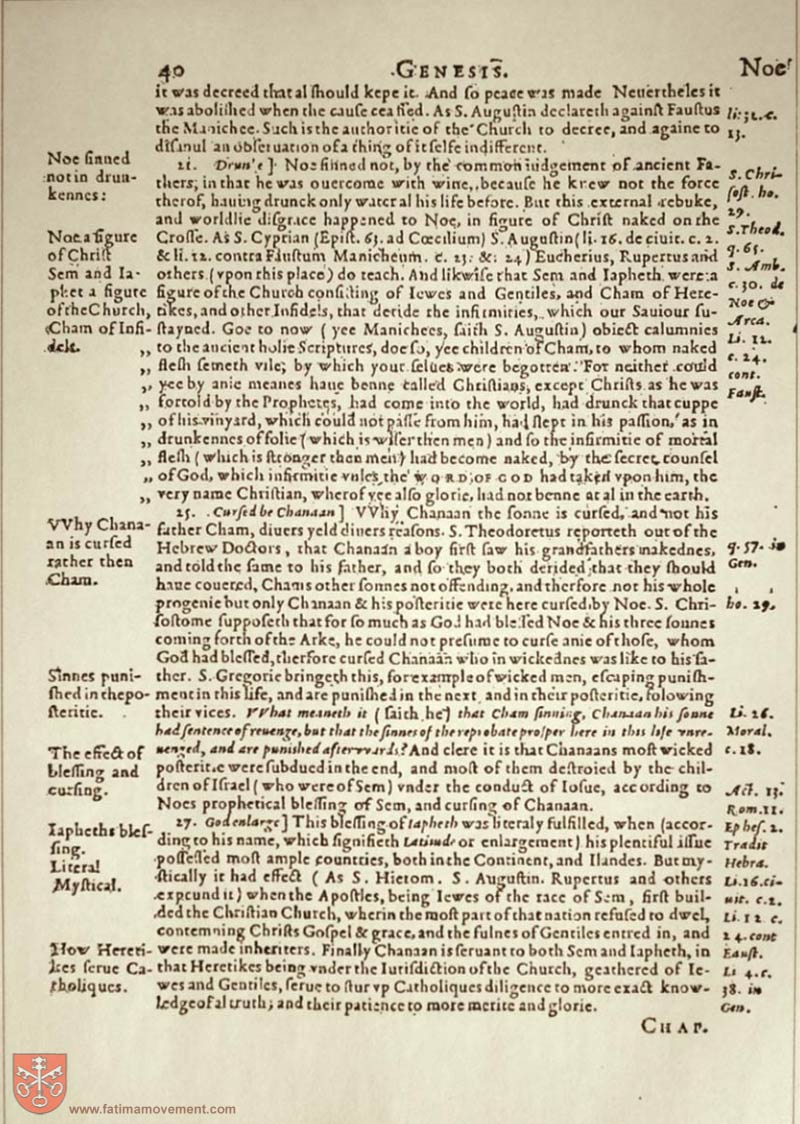 40
GENESIS.
Noe
it was decreed that al should kepe it. And so peace was made Neuertheles it
was abolished when the cause ceassed. As S. Augustin declareth against Faustus
the Manichee. Such is the authoritie of the Church to decree, and againe to
disanul an obseruation of a thing of it selfe indifferent.
li. 32. c.
13.
21. Drunke] Noe sinned not, by the common iudgement of ancient Fa-
thers, in that he was ouercome with wine, because he knew not the force
therof, hauing drunck only water al his life before. But this external rebuke,
and worldlie disgrace happened to Noe, in figure of Christ naked on the
Crosse. As S. Cyprian (Epist. 63. ad Cœcilium) S. Augustin (li. 16. de ciuit. c. 2.
& li. 12. contra Faustum Manicheum. c. 23. &. 24) Eucherius, Rupertus and
others (vpon this place) do teach. And likwise that Sem and Iapheth were a
figure of the Church consisting of Iewes and Gentiles, and Cham of Here-
tikes, and other Infidels, that deride the infirmities, which our Sauiour su-
stayned. Goe to now (yee Manichees, saith S. Augustin) obiect calumnies
,, to the ancient holie Scriptures, doe so, yee children of Cham, to whom naked
,, flesh semeth vile; by which your selues were begotten. For neither could
,, yee by anie meanes haue benne called Christians, except Christ, as he was
,, fortold by the Prophetes, had come into the world, had drunck that cuppe
,, of his vinyard, which could not passe from him, had slept in his passion, as in
,, drunkennes of folie (which is wiser then men) and so the infirmitie of mortal
,, flesh (which is stronger then men) had become naked, by the secret counsel
,, of God, which infirmitie vnles the WORD OF GOD had taken vpon him, the
,, very name Christian, wherof yee also glorie, had not benne at al in the earth.
Noe sinned
not in drun-
kennes:
Noe a figure
of Christ
Sem and Ia-
phet a figure
of the Church,
Cham of Infi-
dels.
S. Chri-
sost. ho.
29.
S. Theod.
q. 65.
S. Amb.
c. 30. de
Noe &
Arca.
Li. 12.
c. 24.
cont.
Faust.
25. Cursed be Chanaan] VVhy Chanaan the sonne is cursed, and not his
father Cham, diuers yeld diuers reasons. S. Theodoretus reporteth out of the
Hebrew Doctors, that Chanaan a boy first saw his grandfathers nakednes,
and told the same to his father, and so they both derided that they should
haue couered, Chams other sonnes not offending, and therfore not his whole
progenie but only Chanaan & his posteritie were here cursed by Noe. S. Chri-
sostome supposeth that for so much as God had blessed Noe & his three sonnes
coming forth of the Arke, he could not presume to curse anie of those, whom
God had blessed, therfore cursed Chanaan who in wickednes was like to his fa-
ther. S. Gregorie bringeth this, for example of wicked men, escaping punish-
ment in this life, and are punished in the next, and in their posteritie, folowing
their vices. VVhat meaneth it (saith he) that Cham sinning, Chanaan his sonne
had sentence of reuenge, but that the sinnes of the reprobate prosper here in this life vnre-
uenged, and are punished afterwards? And clere it is that Chanaans most wicked
posteritie were subdued in the end, and most of them destroied by the chil-
dren of Israel (who were of Sem) vnder the conduct of Iosue, according to
Noes prophetical blessing of Sem, and cursing of Chanaan.
VVhy Chana-
an is cursed
rather then
Cham.
Sinnes puni-
shed in the po-
steritie.
The effect of
blessing and
cursing.
q. 57. in
Gen.
ho. 29.
Li. 26.
Moral.
c. 18.
27. God enlarge] This blessing of Iapheth was literaly fulfilled, when (accor-
ding to his name, which signifieth Latitude or enlargement) his plentiful issue
possessed most ample countries, both in the Continent, and Ilandes. But my-
stically it had effect (As S. Hierom. S. Augustin. Rupertus and others
expound it) when the Apostles, being Iewes of the race of Sem, first buil-
ded the Christian Church, wherin the most part of that nation refused to dwel,
contemning Christs Gospel & grace, and the fulnes of Gentiles entred in, and
were made inheriters. Finally Chanaan is seruant to both Sem and Iapheth, in
that Heretikes being vnder the Iurisdiction of the Church, geathered of Ie-
wes and Gentiles, serue to stur vp Catholiques diligence to more exact know-
ledge of al truth; and their patience to more merite and glorie.
Iapheths bles-
sing.
Literal
Mystical.
How Hereti-
kes serue Ca-
tholiques.
Act. 13.
Rom. 11.
Ephes. 2.
Tradit
Hebra.
Li. 16. ci-
uit. c. 2.
Li. 12 c.
24. cont
Faust.
Li 4. c.
38. in
Gen.
CHAP.
www.fatimamovement.com